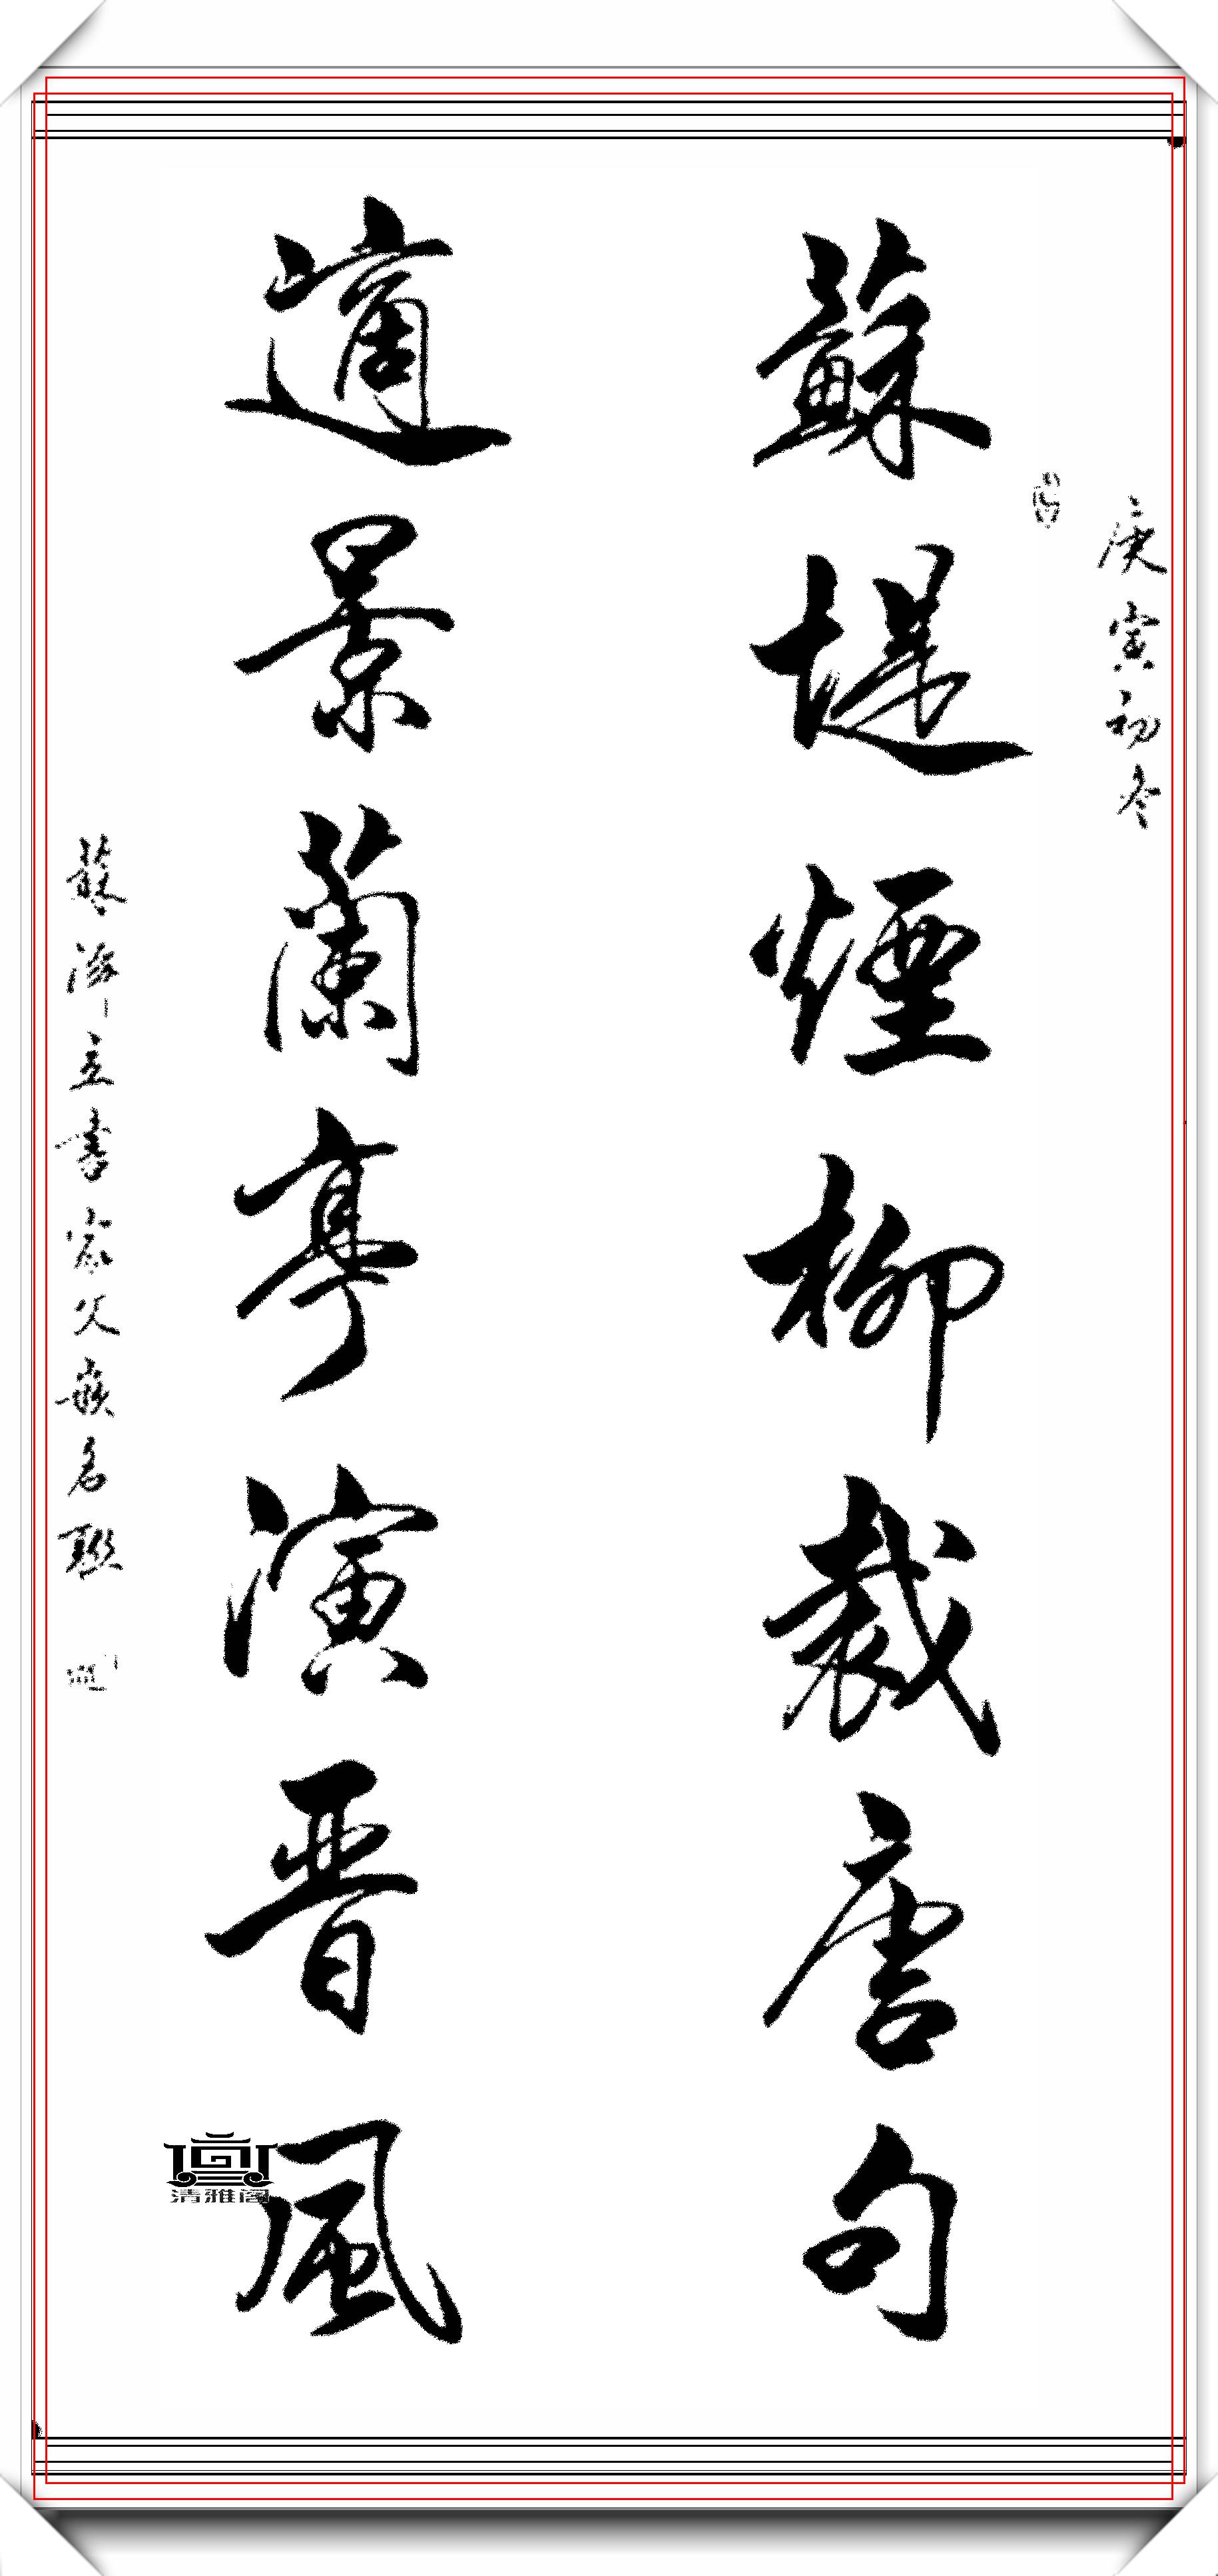 庚寅初冬
蘇堤煙柳裁唐句
適景蘭亭演晋風
立書家父嵌名聯
清雅阁